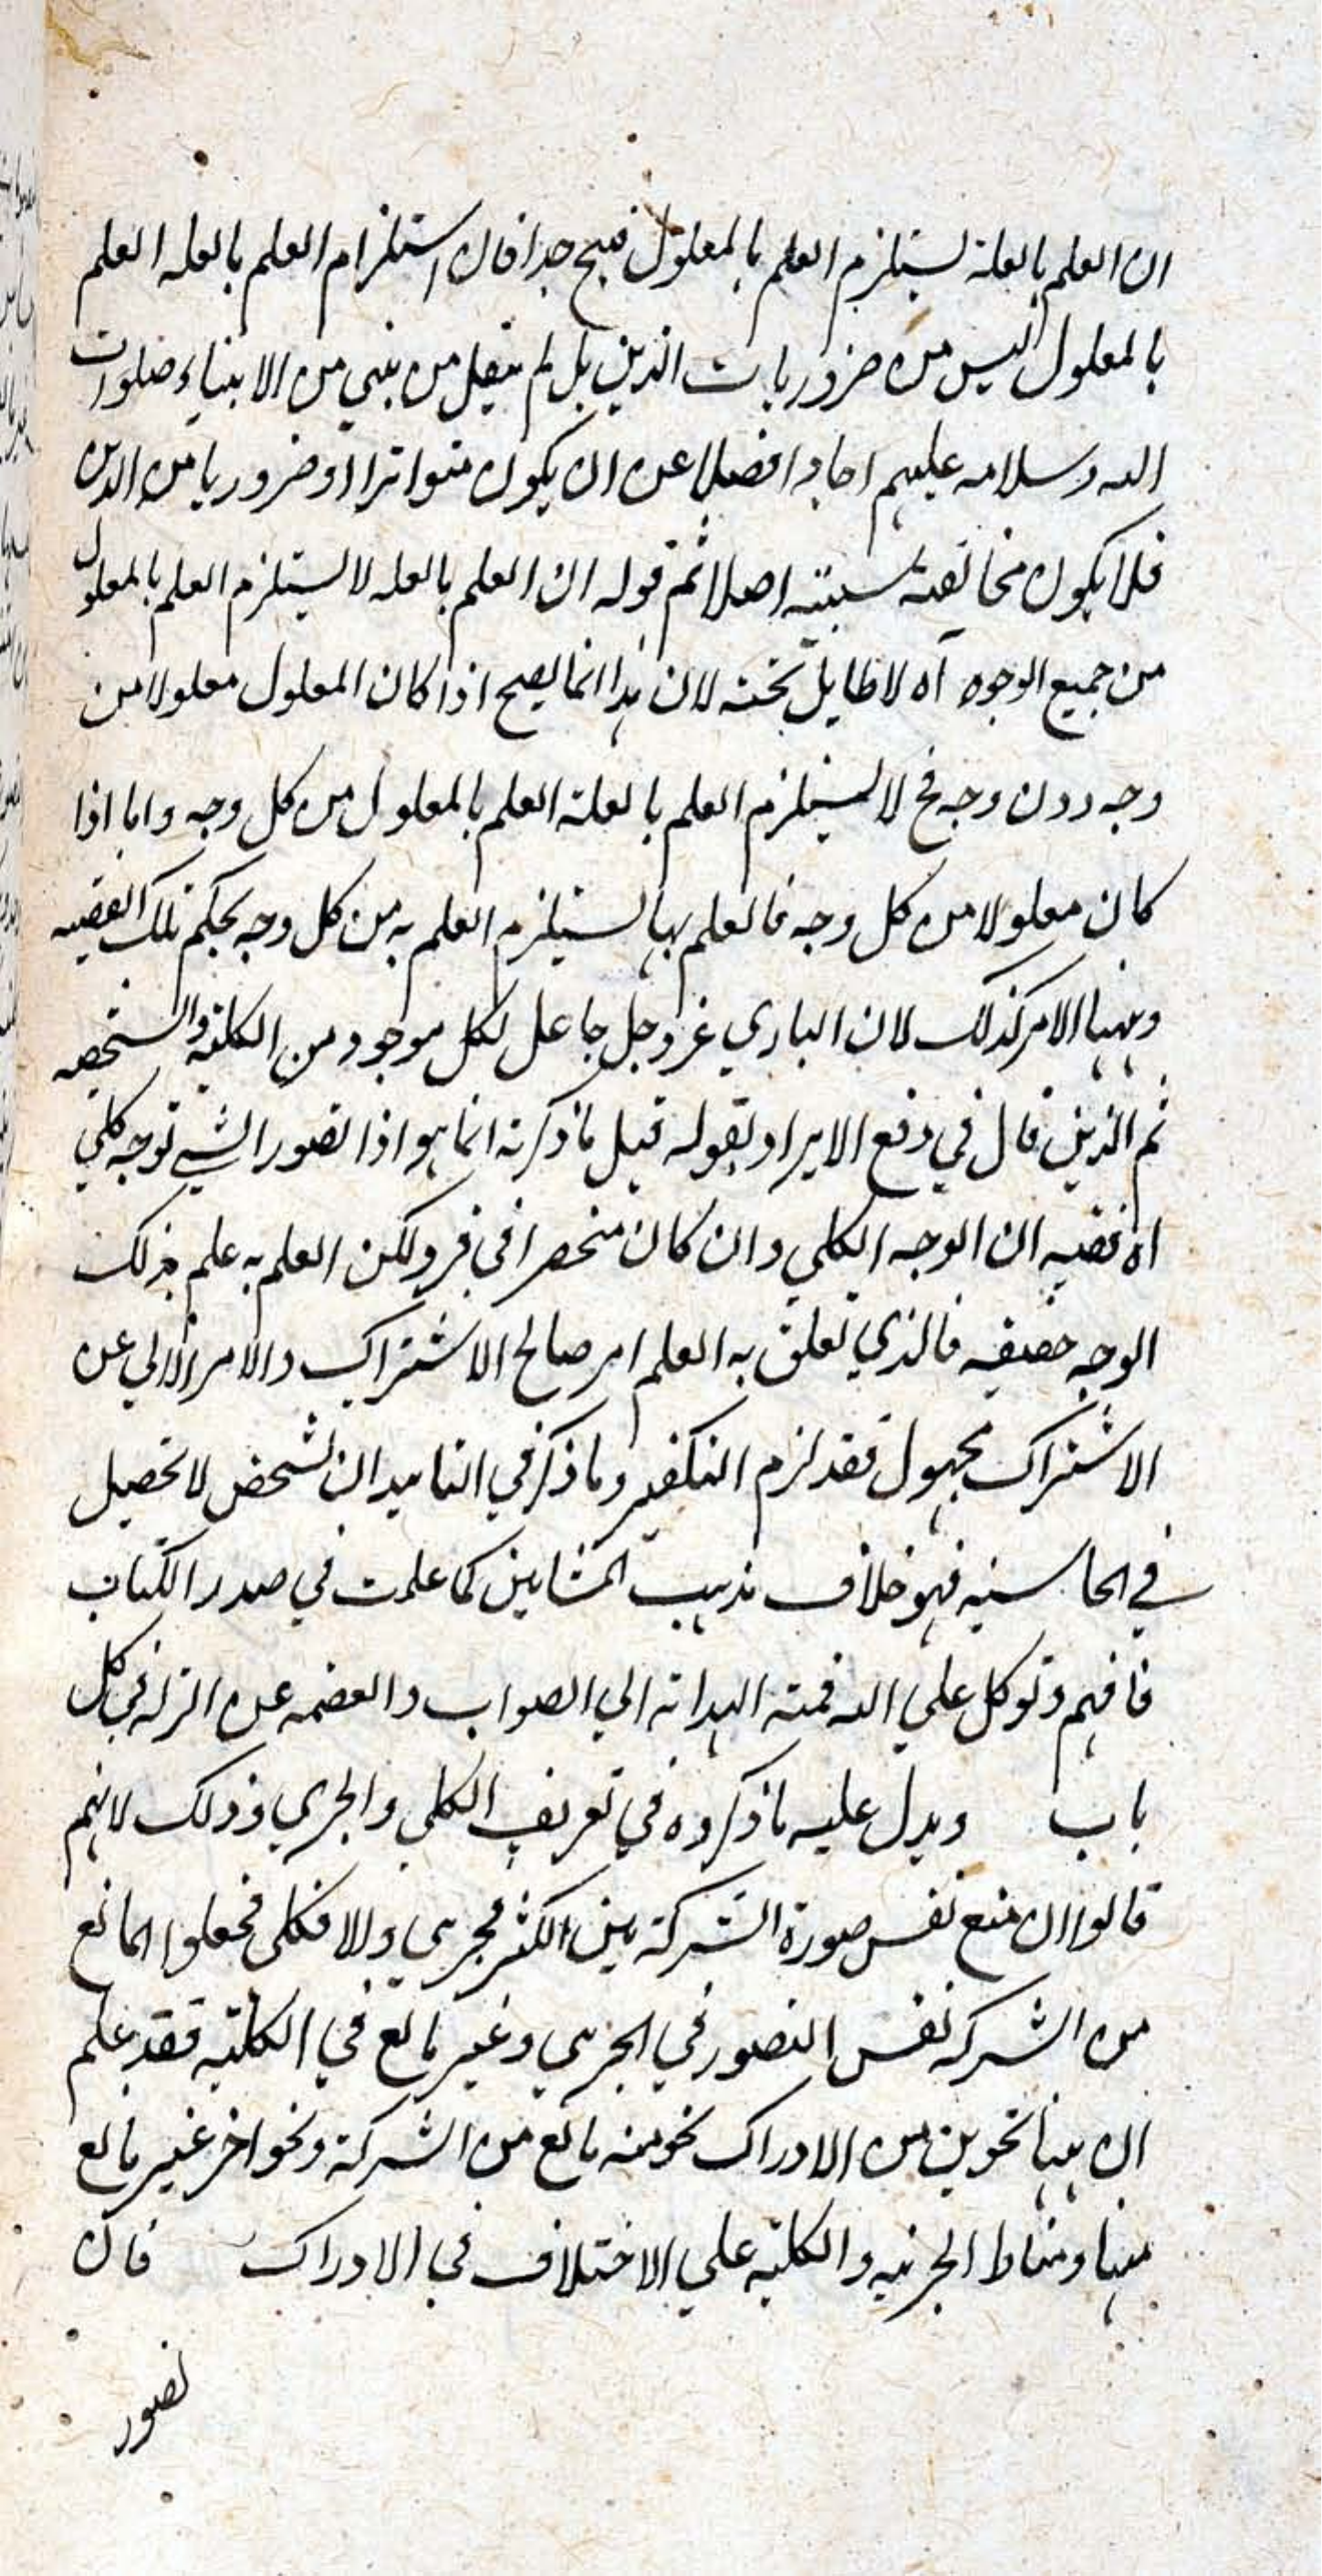 ان العلم بالعلة يستلزم العلم بالمعلول قبيح جدا فان استلزام العلم بالعله العلم
بالمعلول ليس من ضروريات الدين بل لم ينقل من نبي من الانبياء صلوات
الله وسلامه عليهم احادا فضلا عن ان يكون متواترا او ضروريا من الدين
فلا يكون مخالفته سيئة اصلا ثم قوله ان العلم بالعله لا يستلزم العلم بالمعلول
من جميع الوجوه آه لا طايل تحته لان هذا انما يصح اذا كان المعلول معلولا من
وجه دون وجه فح لا يستلزم العلم بالعلة العلم بالمعلول من كل وجه واما اذا
كان معلولا من كل وجه فالعلم بها يستلزم العلم به من كل وجه بحكم تلك القضيه
وههنا الامر كذلك لان الباري عز وجل جاعل لكل موجود من الكلية والشخصيه
ثم الذين قال في دفع الايراد بقوله قيل ما ذكرته انما هو اذا تصور الشي بوجه كلي
اه ففيه ان الوجه الكلي وان كان منحصرا في فرد لكن العلم به علم بذلك
الوجه حقيقه فالذي تعلق به العلم امر صالح الاشتراك والامر الابي عن
الاشتراك مجهول فقد لزم التكفير وما ذكر في التاييد ان تشخص لا تحصيل
في الحاسيه فهو خلاف مذهب المشايين كما علمت في صدر الكتاب
فافهم وتوكل علي الله فمنه الهداية الي الصواب والعصمه عن الزله في كل
باب ويدل عليه ما ذكروه في تعريف الكلي والجزي وذلك لانهم
قالوا ان منع نفس صورة الشركة بين الكثير فجزي والا فكلي فجعلوا المانع
من الشركه نفس التصور في الجزي وغير مانع في الكلية فقد علم
ان ههنا نحوين من الادراك نحو منه مانع من الشركة ونحو اخر غير مانع
منها ومناط الجزئيه والكلية علي الاختلاف في الادراك فان
تصور